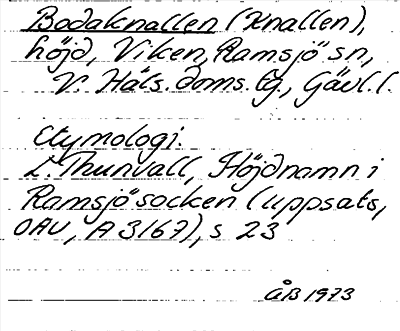 Bodaknallen (Knallen),
höjd, Viken, Ramsjö sn,
V. Häls. doms. tg., Gävl. l.
Etymologi.
L. Thunvall, Höjdnamn i
Ramsjö socken (uppsats,
OAU, A 3167), s 23
ÅB 1973